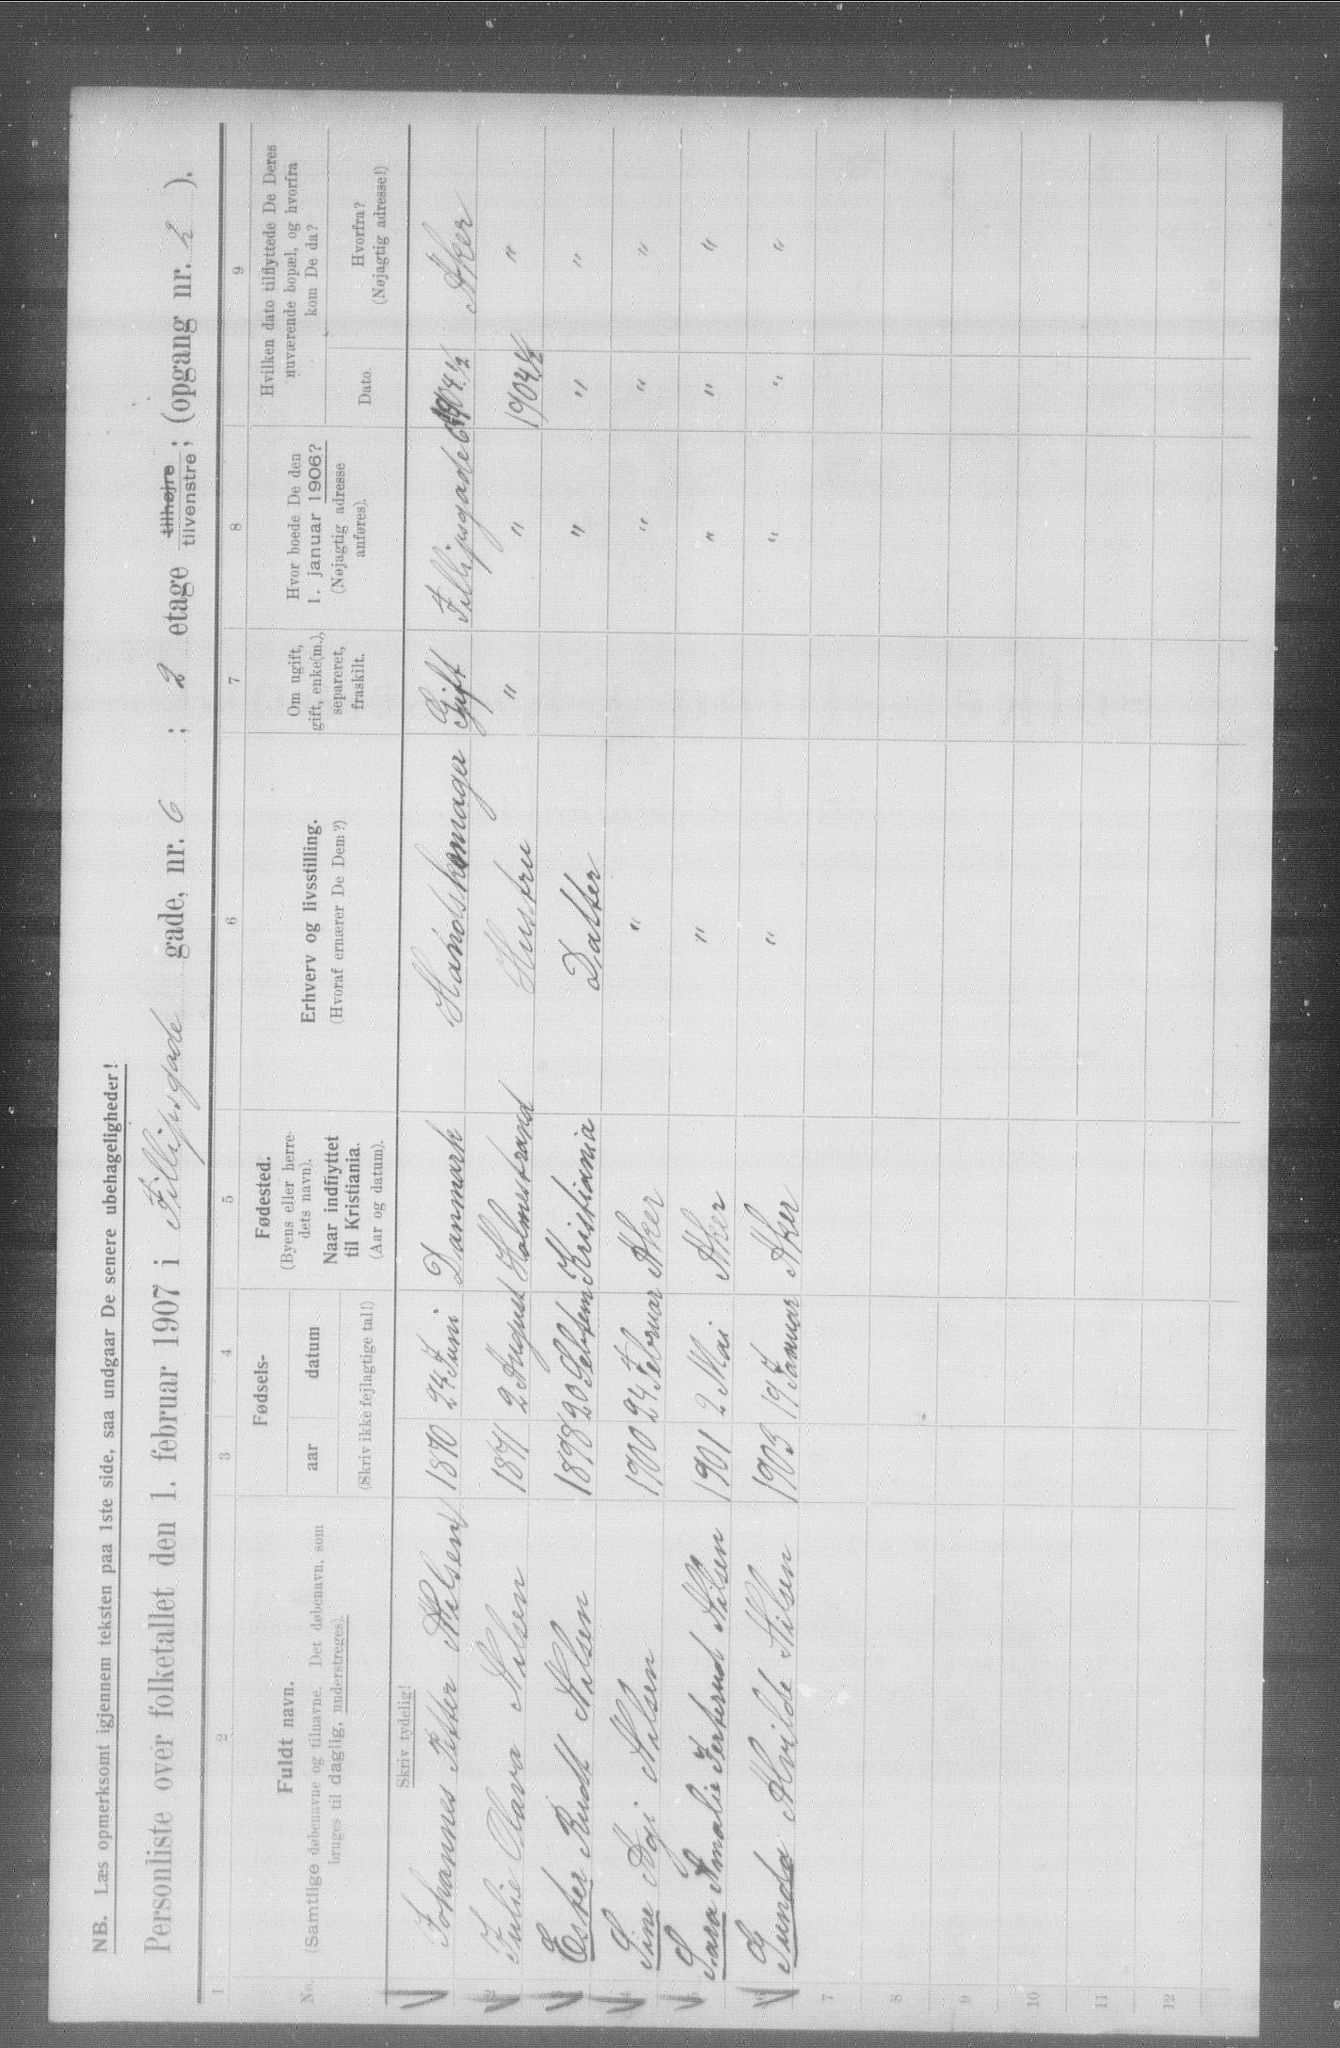 NB. Læs opmerksomt igjennem teksten paa 1ste side, saa undgaar De senere ubehageligheder!
Personliste over folketallet den 1. februar 1907 i Fillipsgade gade, nr. 6 ; 2 etage tilhøjre tilvenstre; (opgang nr. 2 ).
1 2 3 4 5 6 7 8 9
No. Fuldt navn. (Samtlige døbenavne og tilnavne. Det døbenavn, som bruges til daglig, understreges).
Fødsels-
aar datum
(Skriv ikke fejlagtige tal!)
Fødested. (Byens eller herredets navn). Naar indflyttet til Kristiania. (Aar og datum).
Erhverv og livsstilling. (Hvoraf ernærer De Dem?)
Om ugift, gift, enke(m.), separeret, fraskilt.
Hvor boede De den 1. januar 1906? (Nøjagtig adresse anføres).
Hvilken dato tilflyttede De Deres nuværende bopæl, og hvorfra kom De da?
Dato. Hvorfra? (Nøjagtig adresse!)
Skriv tydelig!
1 Johannes Petter Nilsen 1870 24 Juni Danmark Handskemager Gift Fillipsgade 6 1904 ½ Aker
2 Julie Olava Nilsen 1871 2 August Holmestrand Hustru " " 1904 ½ "
3 Ester Rudt Nilsen 1898 20 Septem Kristiania Datter " " "
4 Sine Nilsen 1900 24 Februar Aker " " " "
5 Sara Amalie Nilsen 1901 2 Mai Aker " " " "
6 Alvilde Nilsen 1903 19 Januar Aker " " " "
7
8
9
10
11
12